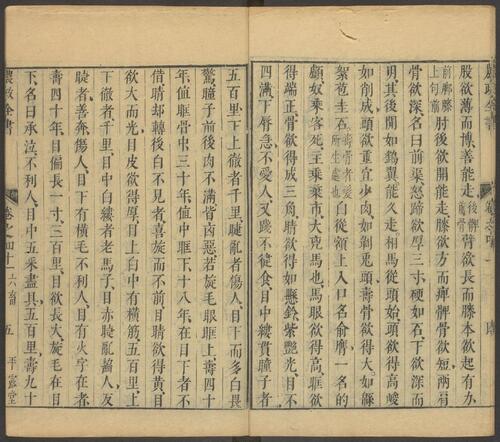 股欲薄而博善能走後髀骨也臂欲長而膝本欲起有力
前脚膝上向前肘後欲開能走膝欲方而庳髀骨欲短兩肩
骨欲深名曰前渠怒蹄欲厚三寸硬如石下欲深而
明其後開如鷂翼能久走相馬從頭始頭欲得高峻
如削成頭欲重宜少肉如剝兔頭壽骨欲得大如綿
絮苞圭石壽骨者髮所生處也白從額上入口名俞膺一名的
顱奴乘客死主乘棄市大兇馬也馬眼欲得高眶欲
得端正骨欲得成三角睛欲得如懸鈴紫艷光目不
四滿下唇急不愛人又踐不健食目中縷貫瞳子者
五百里下上徹者千里睫亂者傷人目下而多白畏
驚瞳子前後肉不滿皆凶惡若旋毛眼眶上壽四十
年值眶骨中三十年值中眶下十八年在目下者不
借睛却轉後白不見者喜旋而不前目睛欲得黃目
欲大而光目皮欲得厚目上白中有橫筋五百里上
下徹者千里目中白縷者老馬子目赤睫亂齧人反
睫者善奔傷人目下有橫毛不利人目有火字在者
壽四十年目偏長一寸三百里目欲長大旋毛在目
下名曰承泣不利人目中五采盡具五百里壽九十
農政全書 卷之四十一 六畜 五 平露堂